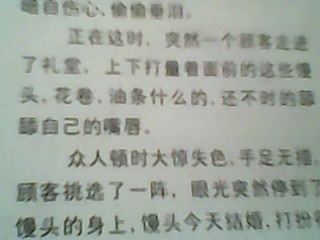 暗自伤心,偷偷垂泪。
正在这时,突然一个顾客走进
了礼堂,上下打量着面前的这些馒
头,花卷,油条什么的,还不时的舔
舔自己的嘴唇。
众人顿时大惊失色,手足无措,
顾客挑选了一阵,眼光突然停到了
馒头的身上,馒头今天结婚,打扮得